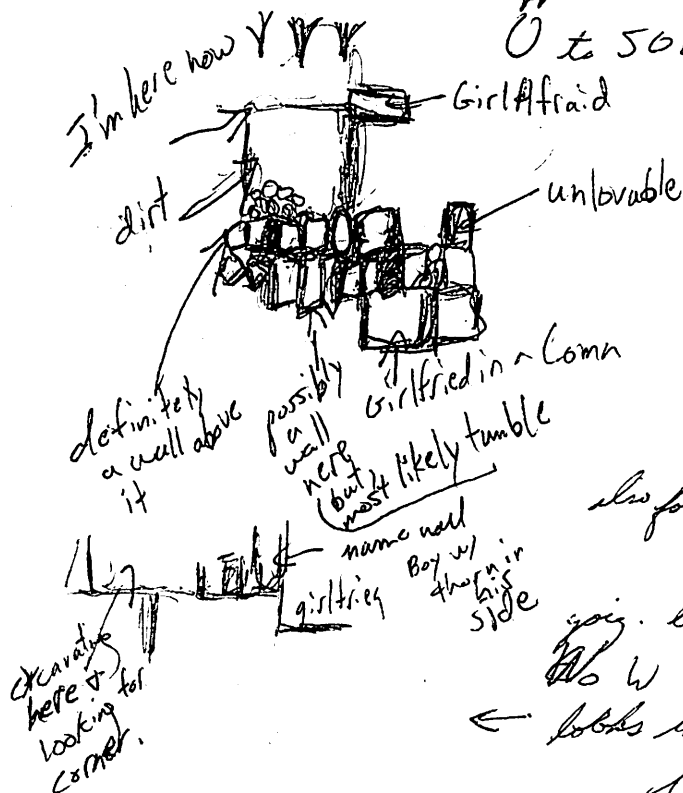 I'm here now
to 50
Girl Afraid
dirt
unlovable
definitely
a wall above
it
possibly
a
wall
here
but,
most likely tumble
Girlfried in a Coma
name wall
Boy w/
thorn in
his
side
also fo
excavating
here &
looking for
corner.
W
← looks